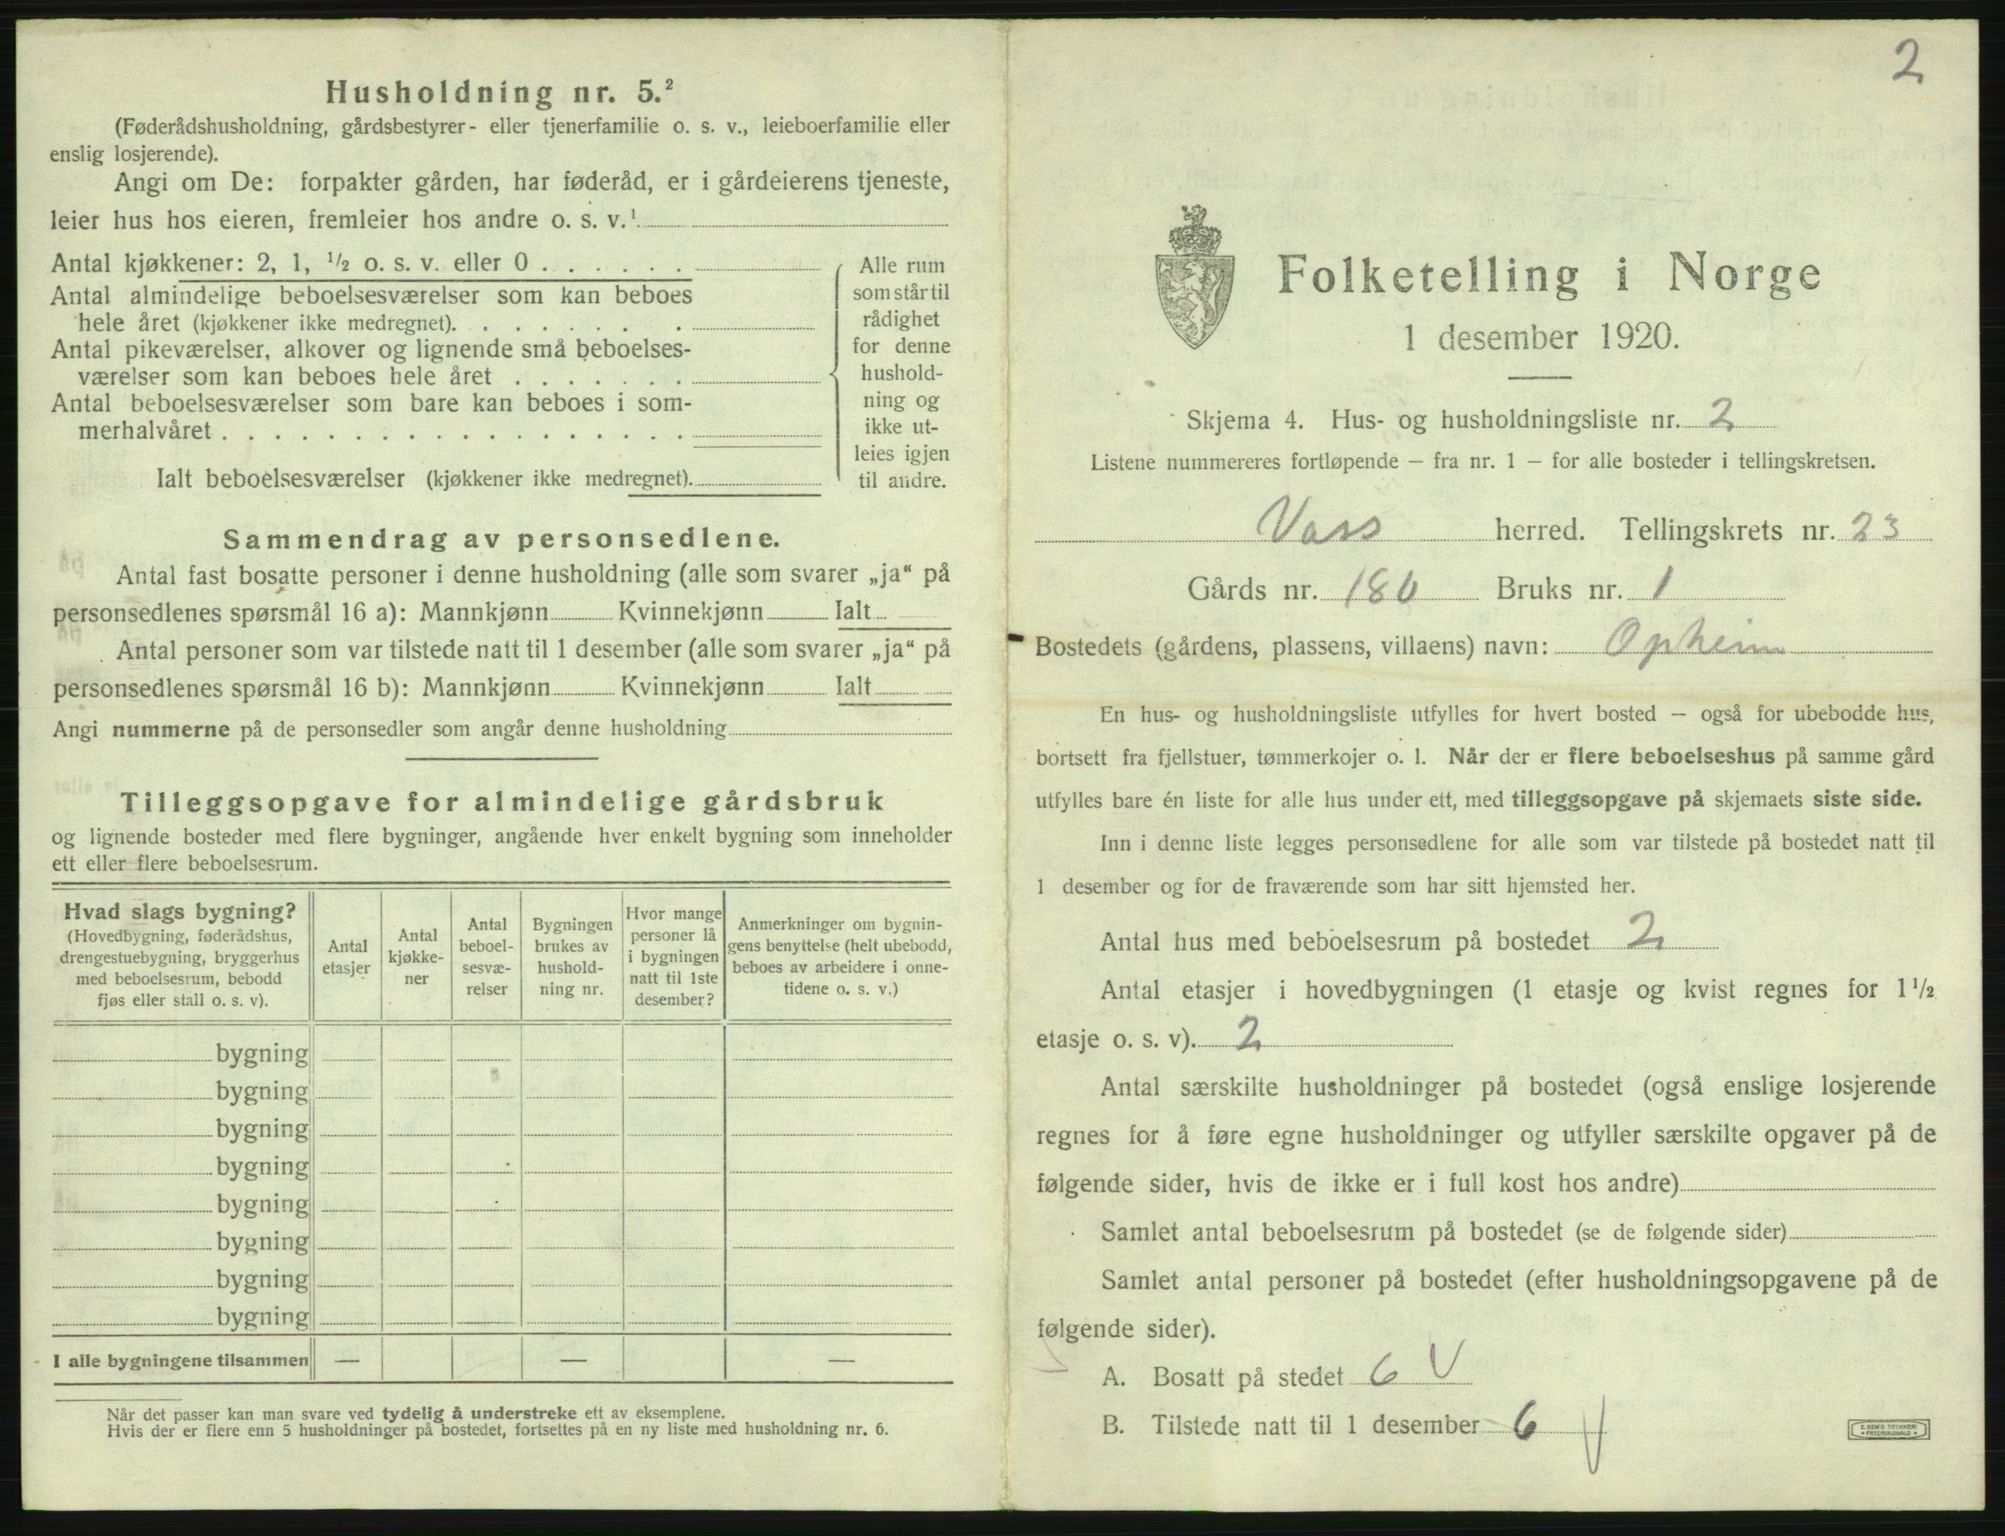 Husholdning nr. 5.²
(Føderådshusholdning, gårdsbestyrer- eller tjenerfamilie o. s. v., leieboerfamilie eller
enslig losjerende).
Angi om De: forpakter gården, har føderåd, er i gårdeierens tjeneste,
leier hus hos eieren, fremleier hos andre o. s. v.¹
Antal kjøkkener: 2, 1, ¹/₂ o. s. v. eller 0 . . . . . .
Antal almindelige beboelsesværelser som kan beboes
hele året (kjøkkener ikke medregnet). . . . . . . .
Antal pikeværelser, alkover og lignende små beboelses-
værelser som kan beboes hele året . . . . . . .
Antal beboelsesværelser som bare kan beboes i som-
merhalvåret . . . . . . . . . . . . . . . . . .
Ialt beboelsesværelser (kjøkkener ikke medregnet).
Alle rum
som står til
rådighet
for denne
hushold-
ning og
ikke ut-
leies igjen
til andre.
Sammendrag av personsedlene.
Antal fast bosatte personer i denne husholdning (alle som svarer „ja“ på
personsedlenes spørsmål 16 a): Mannkjønn Kvinnekjønn Ialt
Antal personer som var tilstede natt til 1 desember (alle som svarer „ja“ på
personsedlenes spørsmål 16 b): Mannkjønn Kvinnekjønn Ialt
Angi nummerne på de personsedler som angår denne husholdning
Tilleggsopgave for almindelige gårdsbruk
og lignende bosteder med flere bygninger, angående hver enkelt bygning som inneholder
ett eller flere beboelsesrum.
Hvad slags bygning?
(Hovedbygning, føderådshus,
drengestuebygning, bryggerhus
med beboelsesrum, bebodd
fjøs eller stall o. s. v).
Antal
etasjer
Antal
kjøkke-
ner
Antal
beboel-
sesvæ-
relser
Bygningen
brukes av
hushold-
ning nr.
Hvor mange
personer lå
i bygningen
natt til 1ste
desember?
Anmerkninger om bygnin-
gens benyttelse (helt ubebodd,
beboes av arbeidere i onne-
tidene o. s. v.)
bygning
bygning
bygning
bygning
bygning
bygning
bygning
bygning
I alle bygningene tilsammen — — —
Når det passer kan man svare ved tydelig å understreke ett av eksemplene.
Hvis der er flere enn 5 husholdninger på bostedet, fortsettes på en ny liste med husholdning nr. 6.
2
Folketelling i Norge
1 desember 1920.
Skjema 4. Hus- og husholdningsliste nr. 2
Listene nummereres fortløpende – fra nr. 1 – for alle bosteder i tellingskretsen.
Vass herred. Tellingskrets nr. 23
Gårds nr. 180 Bruks nr. 1
Bostedets (gårdens, plassens, villaens) navn: Opheim
En hus- og husholdningsliste utfylles for hvert bosted – også for ubebodde hus,
bortsett fra fjellstuer, tømmerkojer o. l. Når der er flere beboelseshus på samme gård
utfylles bare én liste for alle hus under ett, med tilleggsopgave på skjemaets siste side.
Inn i denne liste legges personsedlene for alle som var tilstede på bostedet natt til
1 desember og for de fraværende som har sitt hjemsted her.
Antal hus med beboelsesrum på bostedet 2
Antal etasjer i hovedbygningen (1 etasje og kvist regnes for 1¹/₂
etasje o. s. v). 2
Antal særskilte husholdninger på bostedet (også enslige losjerende
regnes for å føre egne husholdninger og utfyller særskilte opgaver på de
følgende sider, hvis de ikke er i full kost hos andre)
Samlet antal beboelsesrum på bostedet (se de følgende sider)
Samlet antal personer på bostedet (efter husholdningsopgavene på de
følgende sider).
A. Bosatt på stedet 6
B. Tilstede natt til 1 desember 6